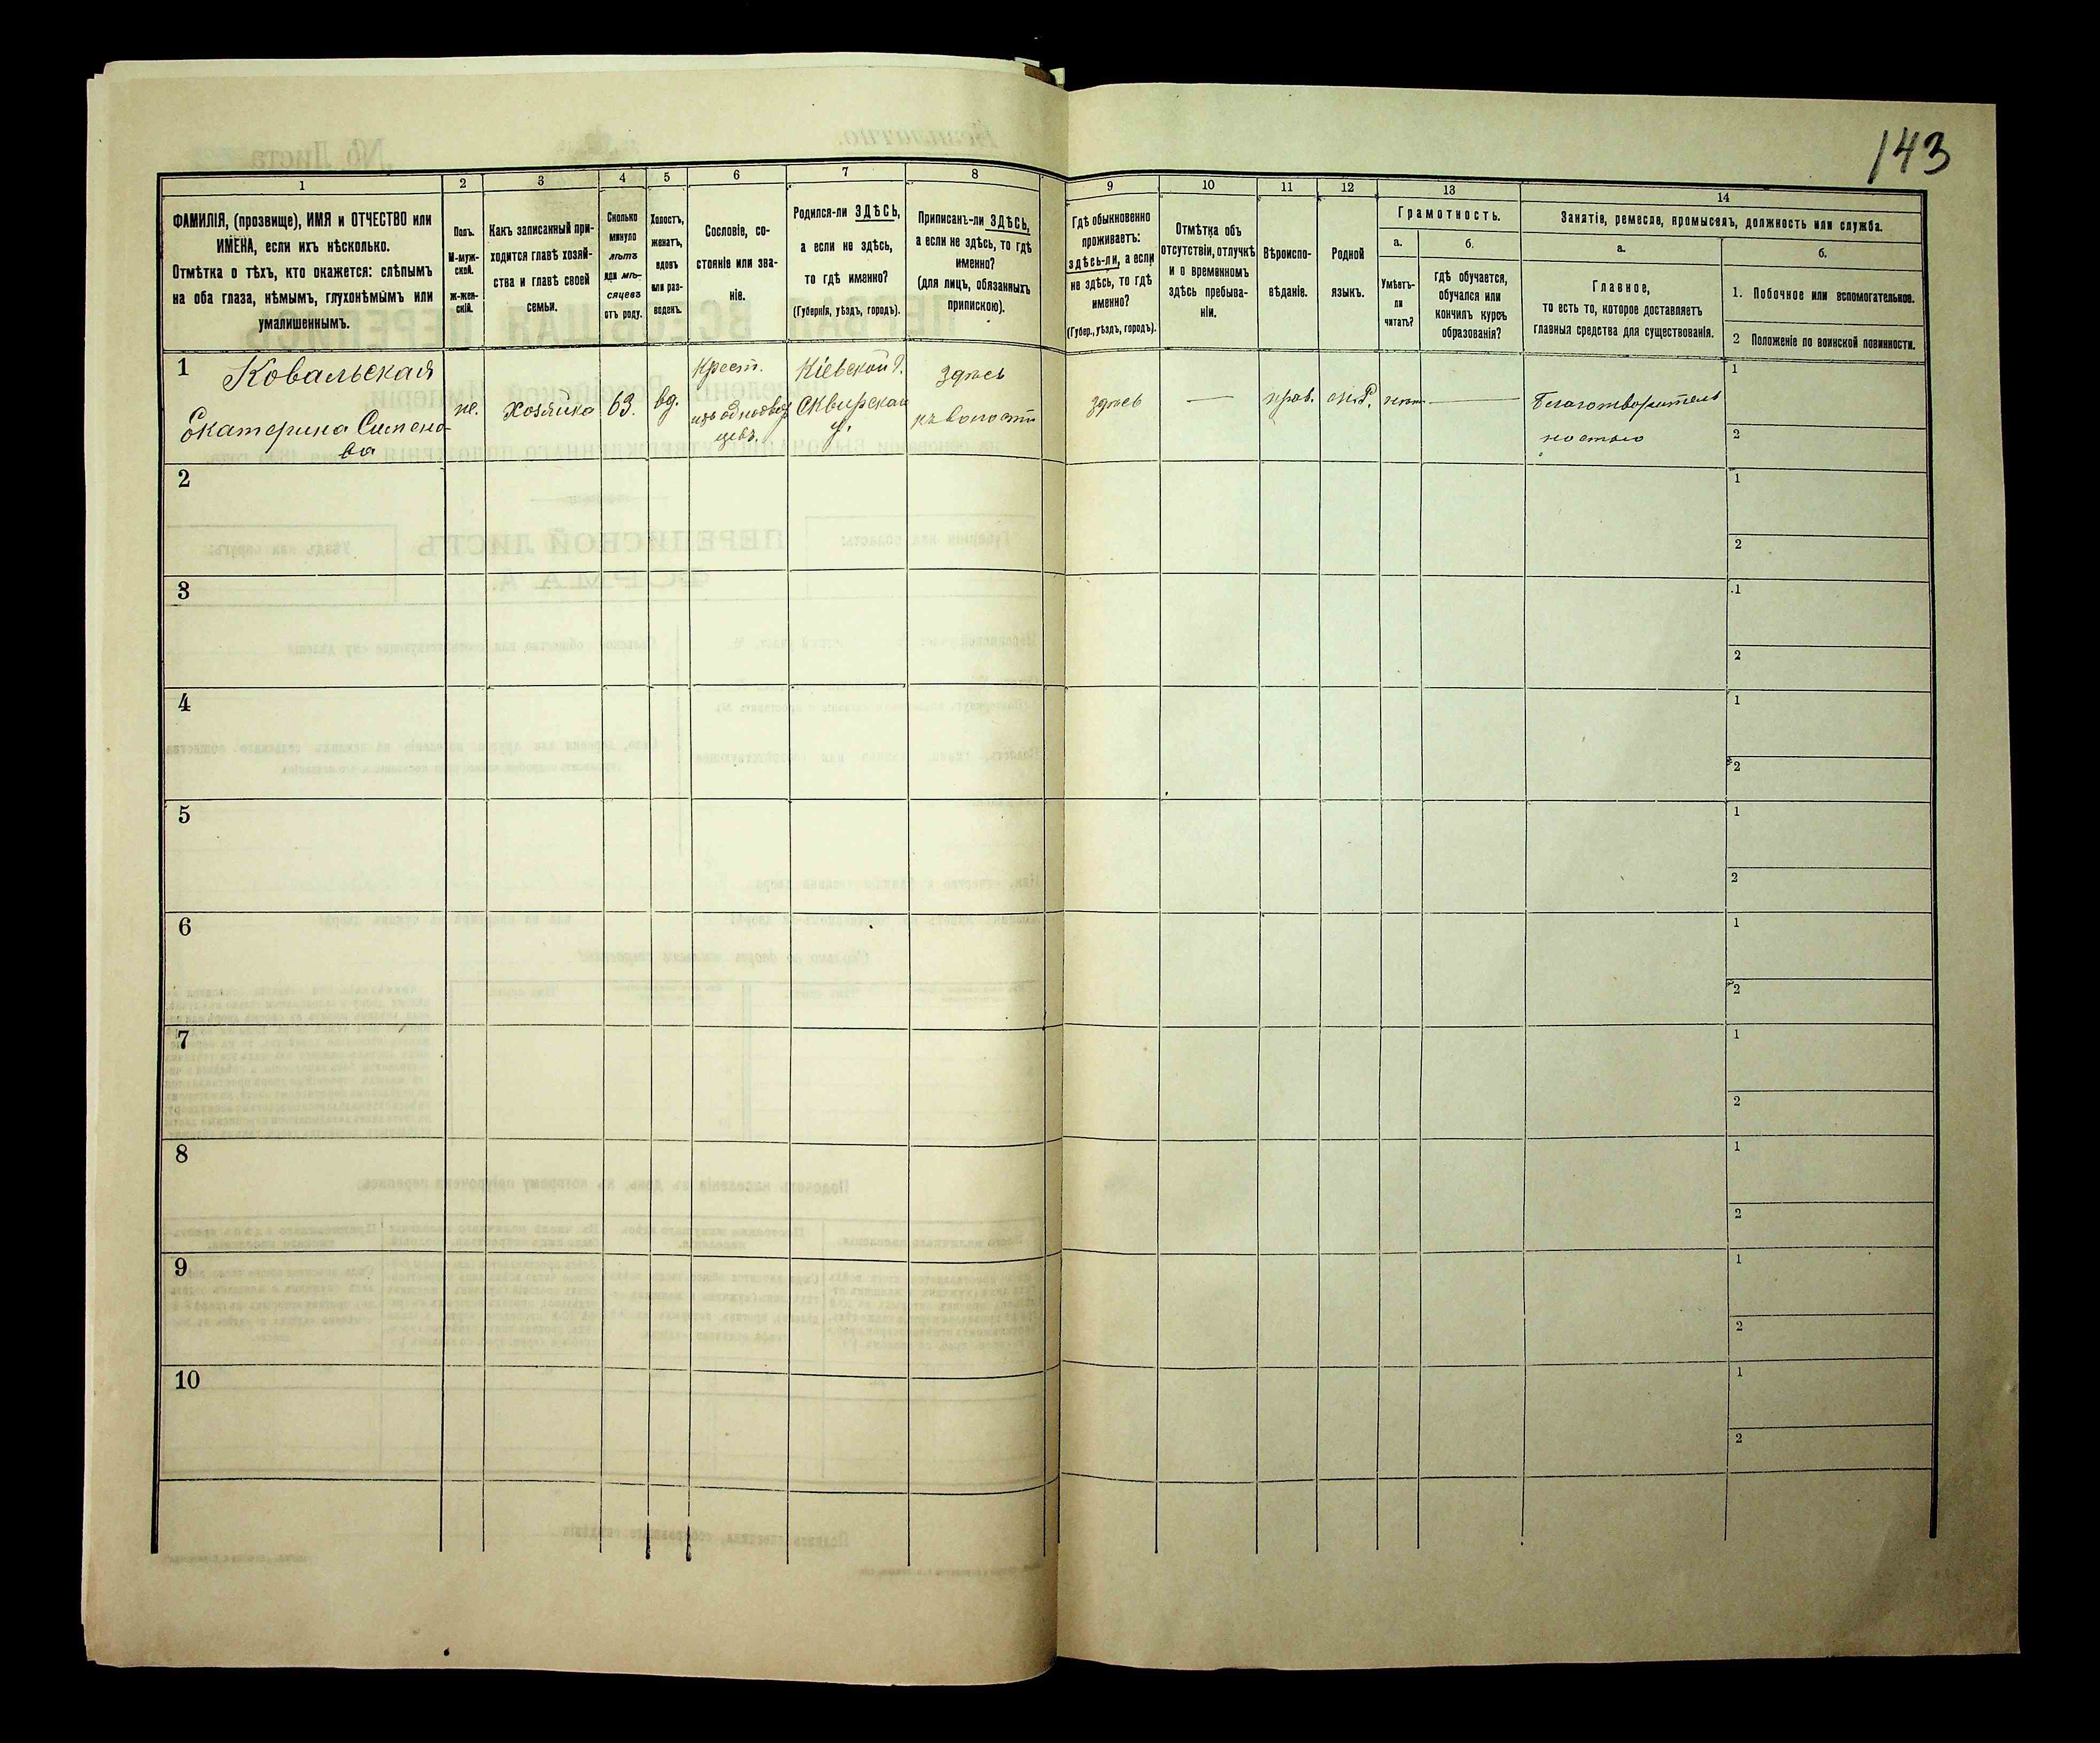 143
1
2
3
4
5
6
7
8
9
10
11
12
13
14
ФАМИЛІЯ, (прозвище), ИМЯ и ОТЧЕСТВО или
ИМЕНА, если ихъ нѣсколько.
Отмѣтка о тѣхъ, кто окажется: слѣпымъ
на оба глаза, нѣмымъ, глухонѣмымъ или
умалишеннымъ.
Полъ.
М-муж-
ской.
Ж-жен-
скій.
Какъ записанный при-
ходится главѣ хозяй-
ства и главѣ своей
семьи.
Сколько
минуло
лѣтъ
или мѣ-
сяцевъ
отъ роду.
Холостъ,
женатъ,
вдовъ
или раз-
веденъ.
Сословіе, со-
стояніе или зва-
ніе.
Родился-ли ЗДѢСЬ,
а если не здѣсь,
то гдѣ именно?
(Губернія, уѣздъ, городъ).
Приписанъ-ли ЗДѢСЬ,
а если не здѣсь, то гдѣ
именно?
(для лицъ, обязанныхъ
припискою).
Гдѣ обыкновенно
проживаетъ:
здѣсь-ли, а если
не здѣсь, то гдѣ
именно?
(Губер., уѣздъ, городъ).
Отмѣтка объ
отсутствіи, отлучкѣ
и о временномъ
здѣсь пребыва-
ніи.
Вѣроиспо-
вѣданіе.
Родной
языкъ.
Грамотность.
а.
Умѣетъ-
ли
читать?
б.
гдѣ обучается,
обучался или
кончилъ курсъ
образованія?
Занятіе, ремесло, промыселъ, должность или служба.
а.
Главное,
то есть то, которое доставляетъ
главныя средства для существованія.
б.
1. Побочное или вспомогательное.
2 Положеніе по воинской повинности.
1 Ковальская
Екатерина Симено-
ва
же.
Хозяйка
63.
вд.
Крест.
изъ однодвор
цевъ.
Кіевской г.
Сквирскаи
у.
здѣсь
къ волости
здѣсь
—
прав.
м.Р.
нѣтъ
—
Благотворитель
ностью
1
2
2
1
2
3
1
2
4
1
2
5
1
2
6
1
2
7
1
2
8
1
2
9
1
2
10
1
2